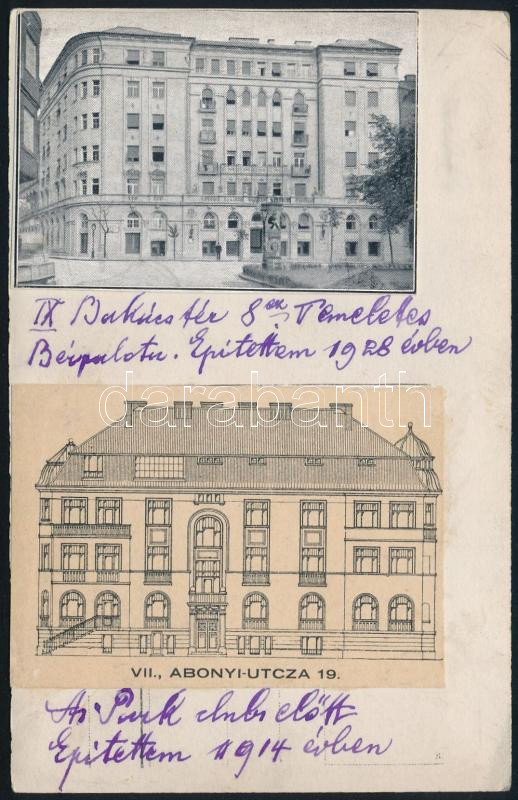 IX Bakács tér 8 ex Temeletes
Bérpalota. Epitettem 1928 évben
darabanth
VII., ABONYI-UTCZA 19.
Az Park club előtt
Epitettem 1914 évben